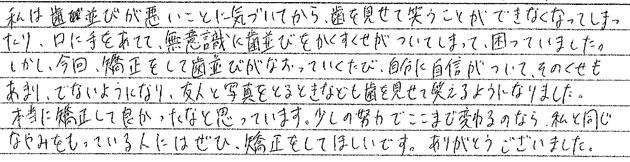 私は歯が並びが悪いことに気づいてから、歯を見せて笑うことができなくなってしまっ
たり、口に手をあてて、無意識に歯並びをかくすくせがついてしまって、困っていました。
しかし、今回、矯正をして歯並びがなおっていくたび、自分に自信がついて、そのくせも
あまり、でないようになり、友人と写真をとるときなども歯を見せて笑えるようになりました。
本当に矯正して良かったなと思っています。少しの努力でここまで変わるのなら、私と同じ
なやみをもっている人にはぜひ、矯正をしてほしいです。ありがとうございました。